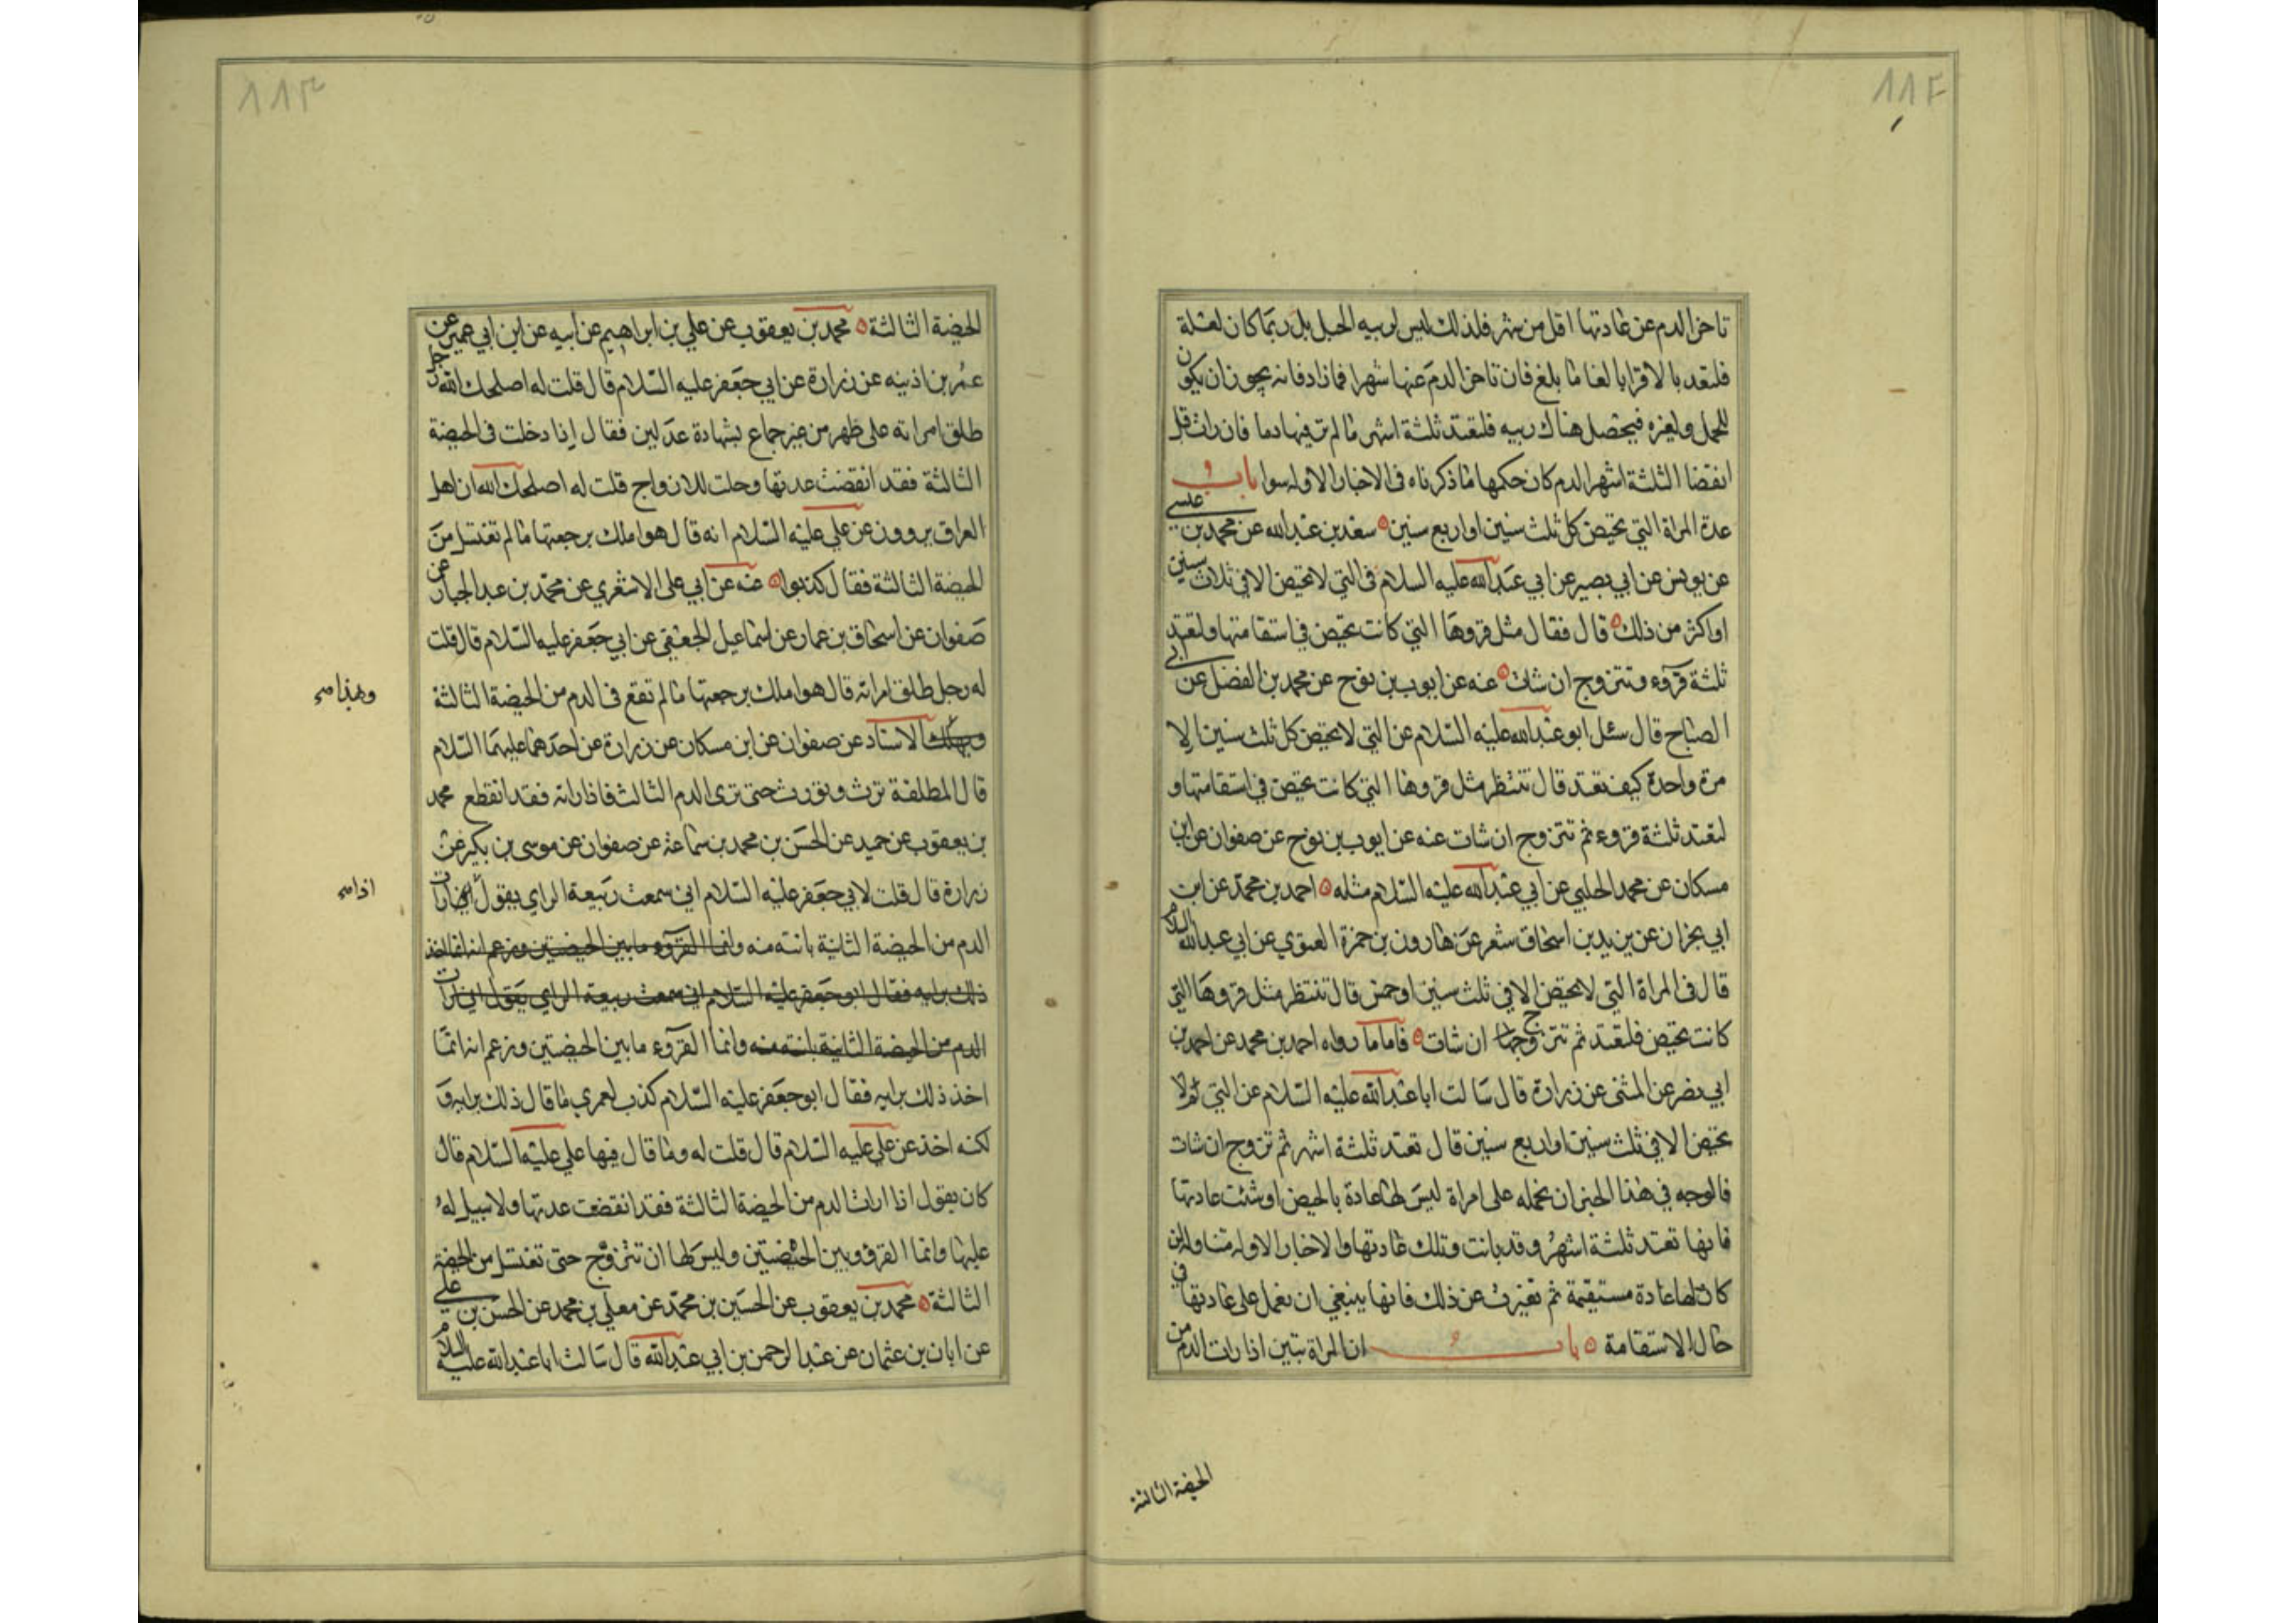 ١١٢
تاخر الدم عن عادتها اقل من شهر فلذلك ليس لريبه الحبل بل ربما كان لعلة
فلتعتد بالاقرا بالغا ما بلغ فان تاخر الدم عنها شهرا فمازاد فانه يجوز ان يكون
للحمل ولغيره فيحصل هناك ريبه فلتعتد ثلثة اشهر ما لم تر فيها دما فان رات قبل
انقضا الثلثة اشهر الدم كان حكمها ما ذكرناه في الاخبار الاوله سوا باب
عدة المراة التي تحيض كل ثلث سنين او اربع سنين سعد بن عبدالله عن محمد بن عيسى
عن يونس عن ابي بصير عن ابي عبدالله عليه السلام في التي لا تحيض الا في ثلاث سنين
او اكثر من ذلك قال فقال مثل قروها التي كانت تحيض في استقامتها ولتعتد
ثلثة قروء وتتزوج ان شات عنه عن ايوب بن نوح عن محمد بن الفضل عن ابي
الصباح قال سئل ابو عبدالله عليه السلام عن التي لا تحيض كل ثلث سنين الا
مرة واحدة كيف تعتد قال تنتظر مثل قروها التي كانت تحيض في استقامتها و
لتعتد ثلثة قروء ثم تتزوج ان شات عنه عن ايوب بن نوح عن صفوان عن ابن
مسكان عن محمد الحلبي عن ابي عبدالله عليه السلام مثله احمد بن محمد عن ابن
ابي نجران عن يزيد بن اسحاق شعر عن هارون بن حمزة الغنوي عن ابي عبدالله السلام
قال في المراة التي لا تحيض الا في ثلث سنين او خمس قال تنتظر مثل قروها التي
كانت تحيض فلتعتد ثم تتزوج ان شات فاما ما رواه احمد بن محمد عن احمد بن
ابي نصر عن المثنى عن زرارة قال سالت ابا عبدالله عليه السلام عن التي لا
تحيض الا في ثلث سنين او اربع سنين قال تعتد ثلثة اشهر ثم تزوج ان شات
فالوجه في هذا الخبر ان نحمله على امراة ليس لها عادة بالحيض او نسيت عادتها
فانها تعتد ثلثة اشهر وقد بانت وتلك عادتها والاخبار الاوله متناوله لمن
كان لها عادة مستقيمة ثم تغيرت عن ذلك فانها ينبغي ان تعمل على عادتها في
حال الاستقامة باب ان المراة تبين اذا رات الدم من
الحيضة الثالثة
١١٣
الحيضة الثالثة محمد بن يعقوب عن علي بن ابراهيم عن ابيه عن ابن ابي عمير عن
عمر بن اذينه عن زرارة عن ابي جعفر عليه السلام قال قلت له اصلحك الله رجل
طلق امراته على طهر من غير جماع بشهادة عدلين فقال اذا دخلت في الحيضة
الثالثة فقد انقضت عدتها وحلت للازواج قلت له اصلحك الله ان اهل
العراق يروون عن علي عليه السلام انه قال هو املك برجعتها ما لم تغتسل من
الحيضة الثالثة فقال كذبوا عنه عن ابي علي الاشعري عن محمد بن عبدالجبار عن
صفوان عن اسحاق بن عمار عن اسماعيل الجعفي عن ابي جعفر عليه السلام قال قلت
له رجل طلق امراته قال هو املك برجعتها ما لم تقع في الدم من الحيضة الثالثة
وبهذا صح
الاسناد عن صفوان عن ابن مسكان عن زرارة عن احدهما عليهما السلام
قال المطلقة ترث وتورث حتى ترى الدم الثالث فاذا راته فقد انقطع محمد
بن يعقوب عن حميد عن الحسن بن محمد بن سماعة عن صفوان عن موسى بن بكير عن
زرارة قال قلت لابي جعفر عليه السلام اني سمعت ربيعة الراي يقول رات
اذا صح
الدم من الحيضة الثانية بانت منه وانما القروء ما بين الحيضتين وزعم انه انما اخذ
ذلك برايه فقال ابو جعفر عليه السلام اني سمعت ربيعة الراي يقول اني رات
الدم من الحيضة الثانية بانت منه وانما القروء ما بين الحيضتين وزعم انه انما
اخذ ذلك برايه فقال ابو جعفر عليه السلام كذب لعمري ما قال ذلك برايه و
لكنه اخذ عن علي عليه السلام قال قلت له وما قال فيها علي عليه السلام قال
كان يقول اذا رات الدم من الحيضة الثالثة فقد انقضت عدتها ولا سبيل له
عليها وانما القرؤ بين الحيضتين وليس لها ان تتزوج حتى تغتسل من الحيضة
الثالثة محمد بن يعقوب عن الحسين بن محمد عن معلي بن محمد عن الحسن بن علي
عن ابان بن عثمان عن عبدالرحمن بن ابي عبدالله قال سالت ابا عبدالله عليه السلام